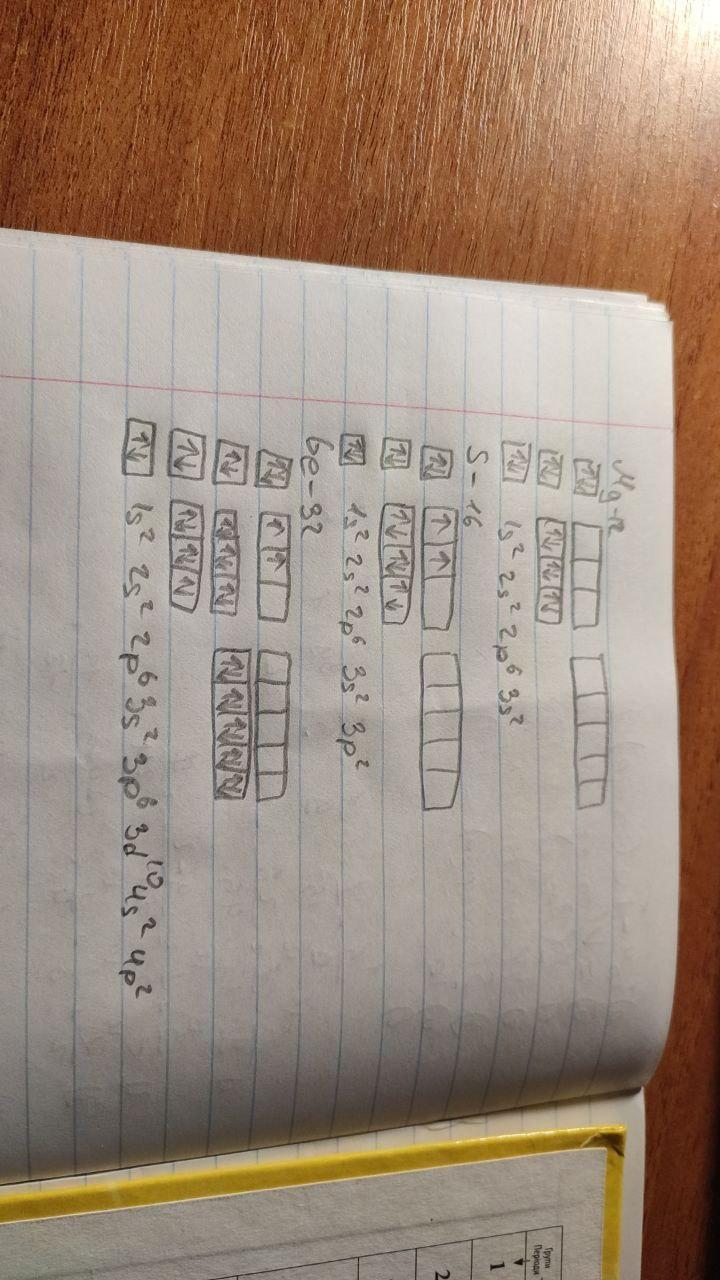 Mg-12
1s² 2s² 2p⁶ 3s²
S-16
1s² 2s² 2p⁶ 3s² 3p²
Ge-32
1s² 2s² 2p⁶ 3s² 3p⁶ 3d¹⁰ 4s² 4p²
Групи
Періоди
1
2